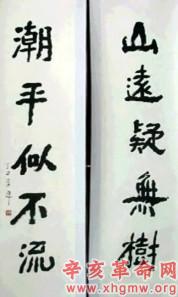 山遠疑無樹
潮平似不流
辛亥革命网
www.xhgmw.org